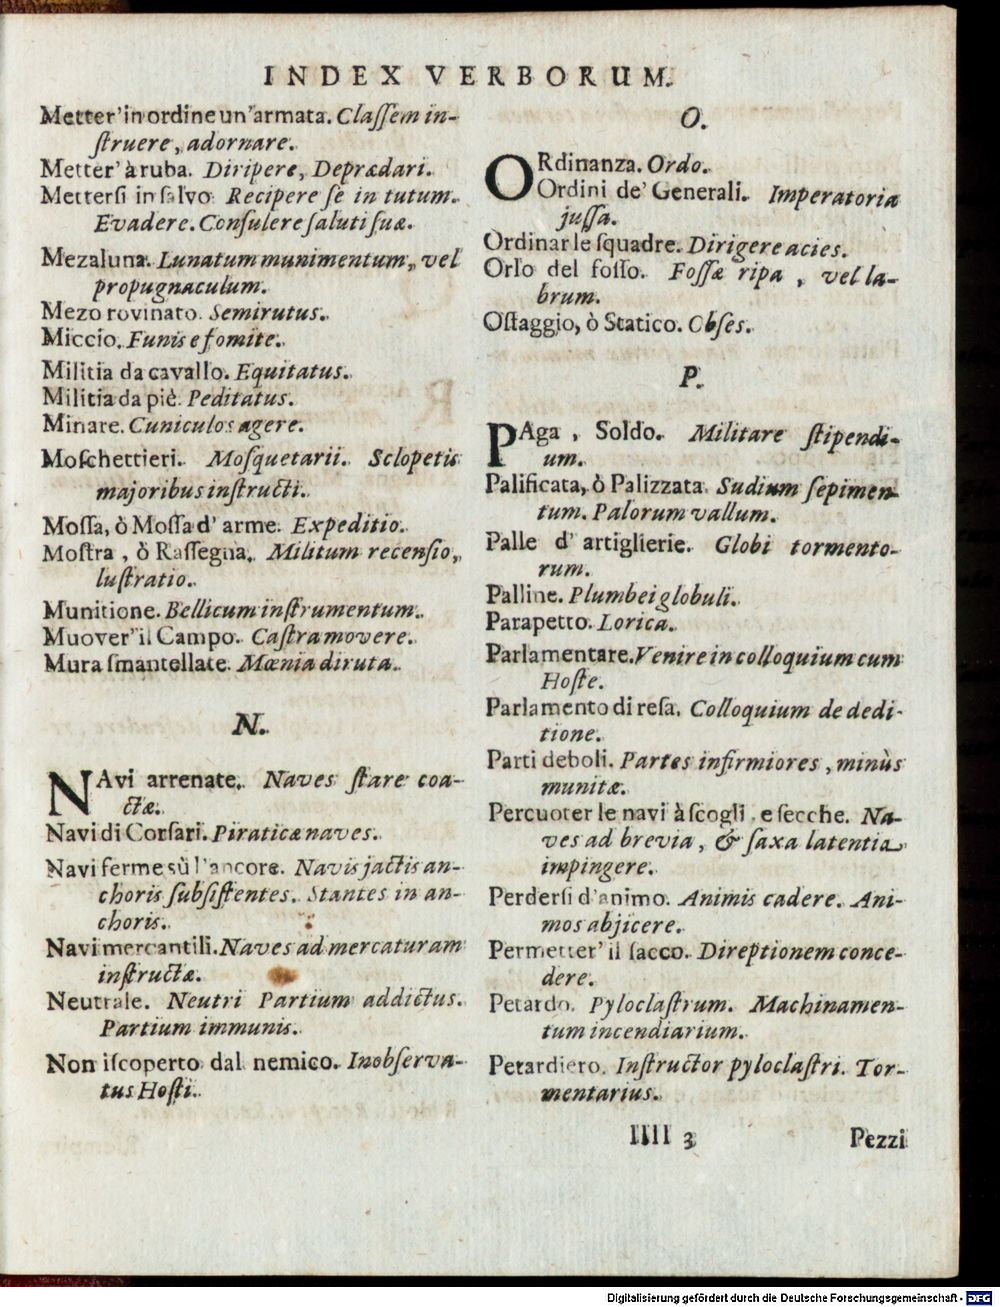 INDEX VERBORUM.
Metter' in ordine un' armata. Claſſem in-
ſtruere, adornare.
Metter' à ruba. Diripere, Deprædari.
Metterſi in ſalvo. Recipere ſe in tutum.
Evadere. Conſulere ſaluti ſuæ.
Mezaluna. Lunatum munimentum, vel
propugnaculum.
Mezo rovinato. Semirutus.
Miccio. Funis e fomite.
Militia da cavallo. Equitatus.
Militia da piè. Peditatus.
Minare. Cuniculos agere.
Moſchettieri. Moſquetarii. Sclopetis
majoribus inſtructi.
Moſſa, ò Moſſa d' arme. Expeditio.
Moſtra, ò Raſſegna. Militum recenſio,
luſtratio.
Munitione. Bellicum inſtrumentum.
Muover' il Campo. Caſtra movere.
Mura ſmantellate. Mœnia diruta.
N.
NAvi arrenate. Naves ſtare coa-
ctæ.
Navi di Corſari. Piraticæ naves.
Navi ferme sù l'ancore. Navis jactis an-
choris ſubſiſtentes. Stantes in an-
choris.
Navi mercantili. Naves ad mercaturam
inſtructæ.
Neutrale. Neutri Partium addictus.
Partium immunis.
Non iſcoperto dal nemico. Inobſerva-
tus Hoſti.
O.
ORdinanza. Ordo.
Ordini de' Generali. Imperatoria
juſſa.
Ordinar le ſquadre. Dirigere acies.
Orlo del foſſo. Foſſæ ripa, vel la-
brum.
Oſtaggio, ò Statico. Obſes.
P.
PAga, Soldo. Militare ſtipendi-
um.
Palificata, ò Palizzata. Sudium ſepimen-
tum. Palorum vallum.
Palle d' artiglierie. Globi tormento-
rum.
Palline. Plumbei globuli.
Parapetto. Lorica.
Parlamentare. Venire in colloquium cum
Hoſte.
Parlamento di reſa. Colloquium de dedi-
tione.
Parti deboli. Partes infirmiores, minùs
munitæ.
Percuoter le navi à ſcogli e ſecche. Na-
ves ad brevia, & ſaxa latentia
impingere.
Perderſi d'animo. Animis cadere. Ani-
mos abjicere.
Permetter' il ſacco. Direptionem conce-
dere.
Petardo. Pyloclaſtrum. Machinamen-
tum incendiarium.
Petardiero. Inſtructor pyloclaſtri. Tor-
mentarius.
llll 3 Pezzi
Digitalisierung gefördert durch die Deutsche Forschungsgemeinschaft - DFG